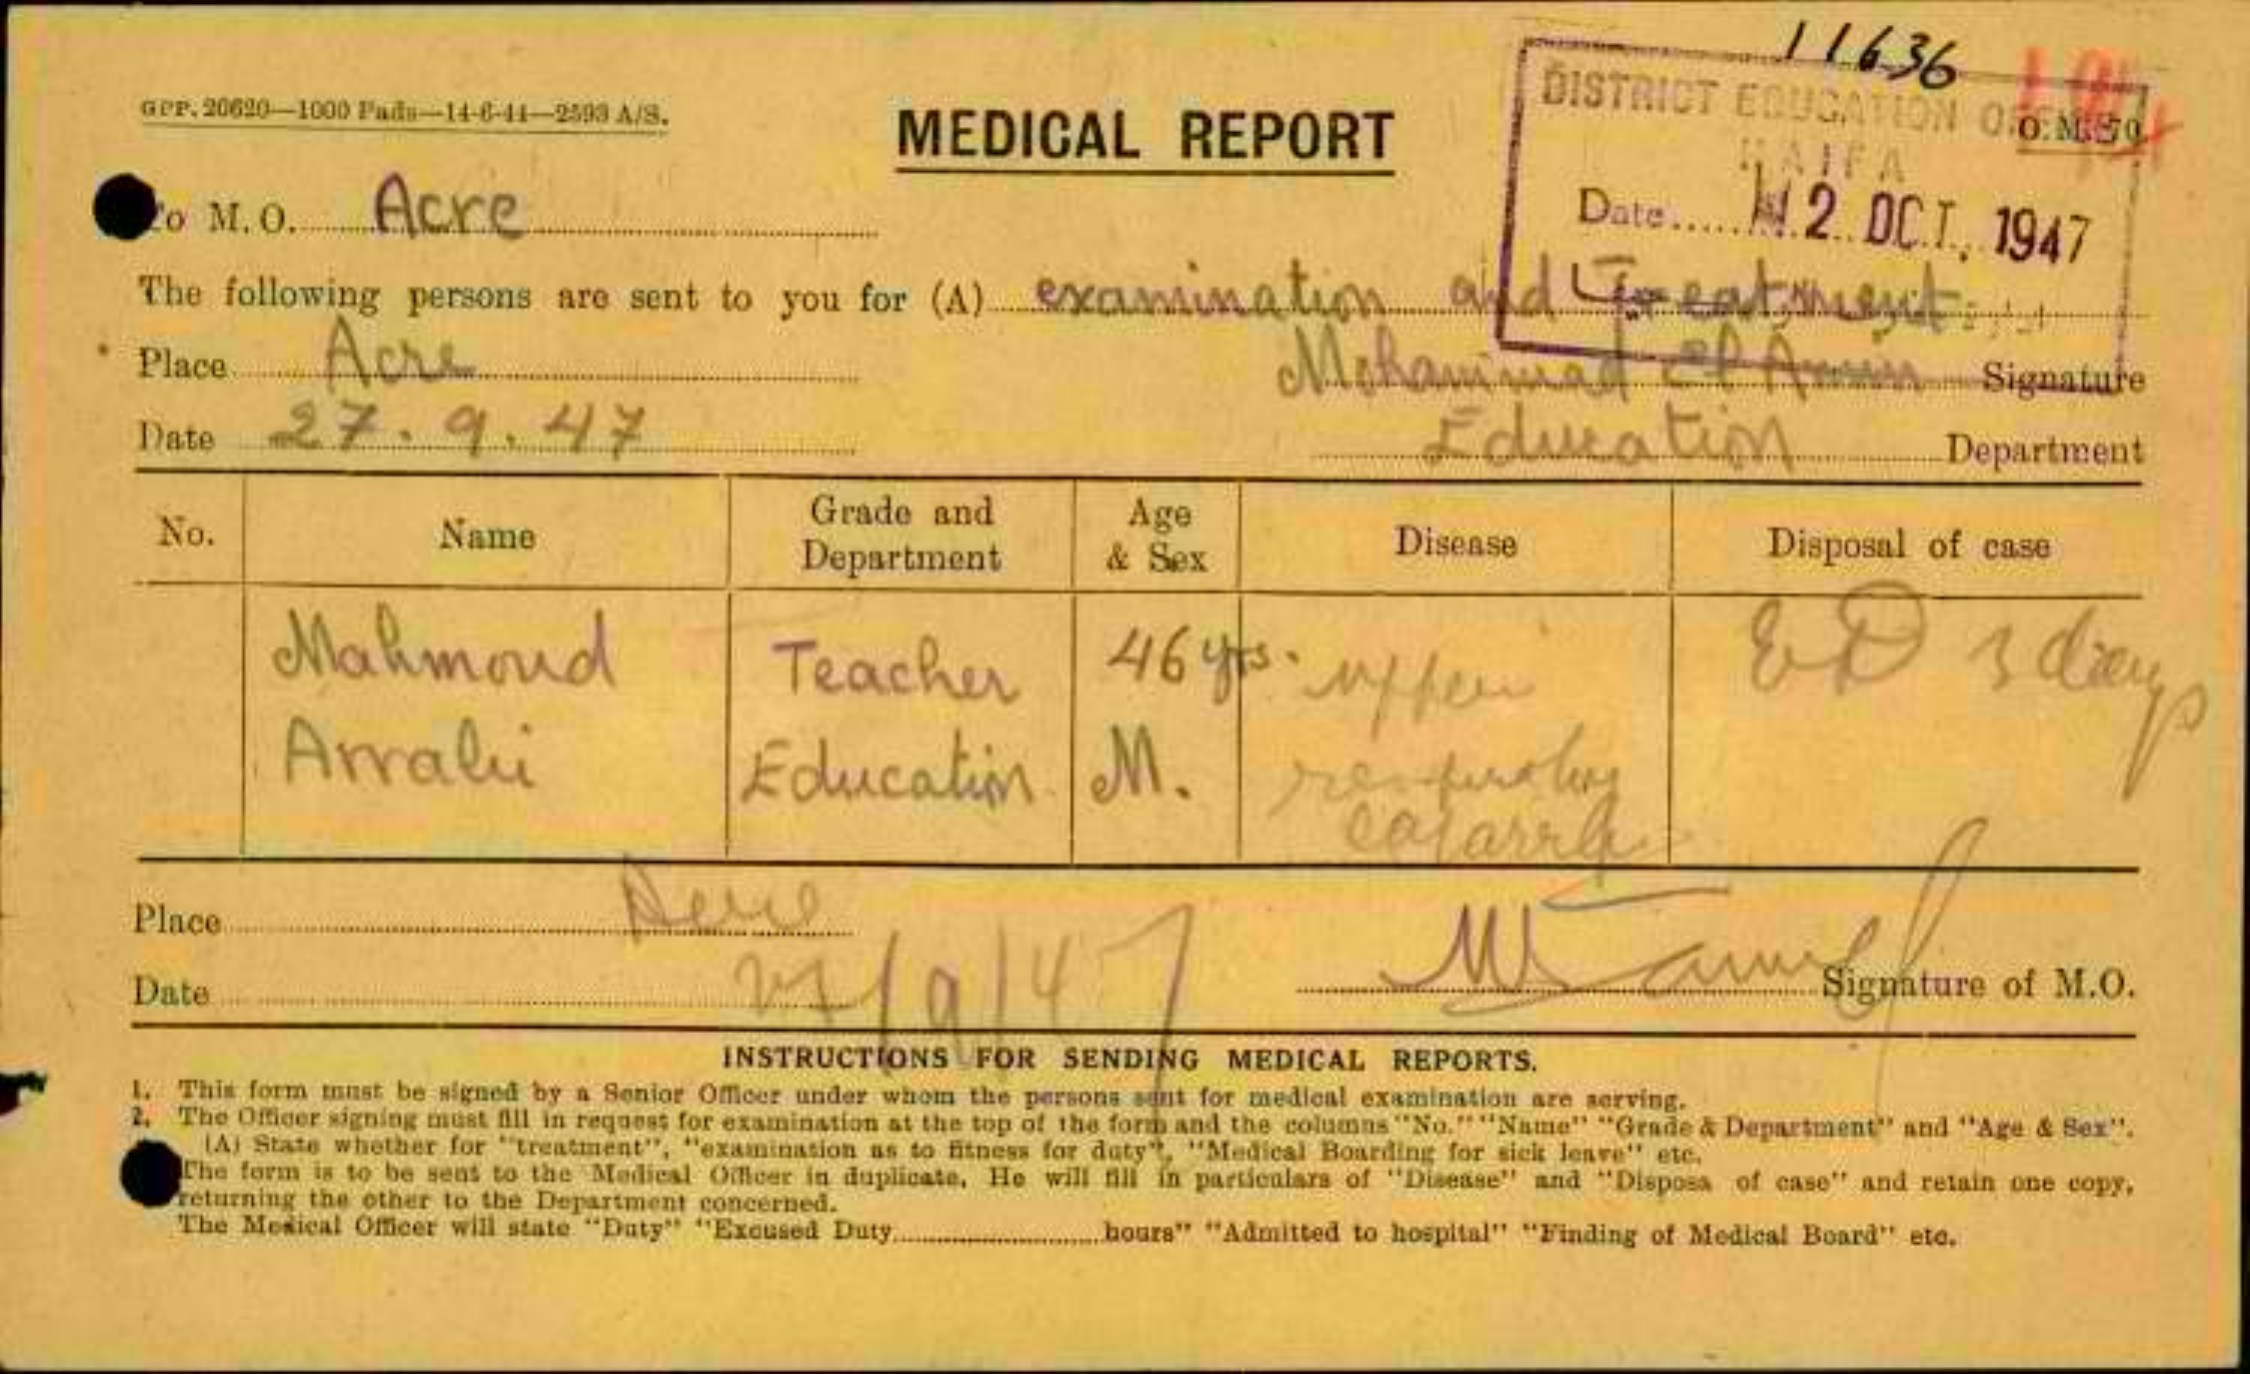 11636
GPP. 20620—1000 Pads—14-6-44—2593 A/S.
MEDICAL REPORT
DISTRICT EDUCATION
HAIFA
Date 2 OCT. 1947
To M.O. Acre
The following persons are sent to you for (A) examination and Treatment
Place Acre Mohammad El Amin Signature
Date 27.9.47 Education Department
No. Name Grade and Department Age & Sex Disease Disposal of case
Mahmoud Teacher 46 yrs. upper ED 3 days
Education M. respiratory
catarrh
Place Acre
Date 27/9/47 Signature of M.O.
INSTRUCTIONS FOR SENDING MEDICAL REPORTS.
1. This form must be signed by a Senior Officer under whom the persons sent for medical examination are serving.
2. The Officer signing must fill in request for examination at the top of the form and the columns "No." "Name" "Grade & Department" and "Age & Sex".
(A) State whether for "treatment", "examination as to fitness for duty", "Medical Boarding for sick leave" etc.
The form is to be sent to the Medical Officer in duplicate. He will fill in particulars of "Disease" and "Disposa of case" and retain one copy,
returning the other to the Department concerned.
The Medical Officer will state "Duty" "Excused Duty..........hours" "Admitted to hospital" "Finding of Medical Board" etc.